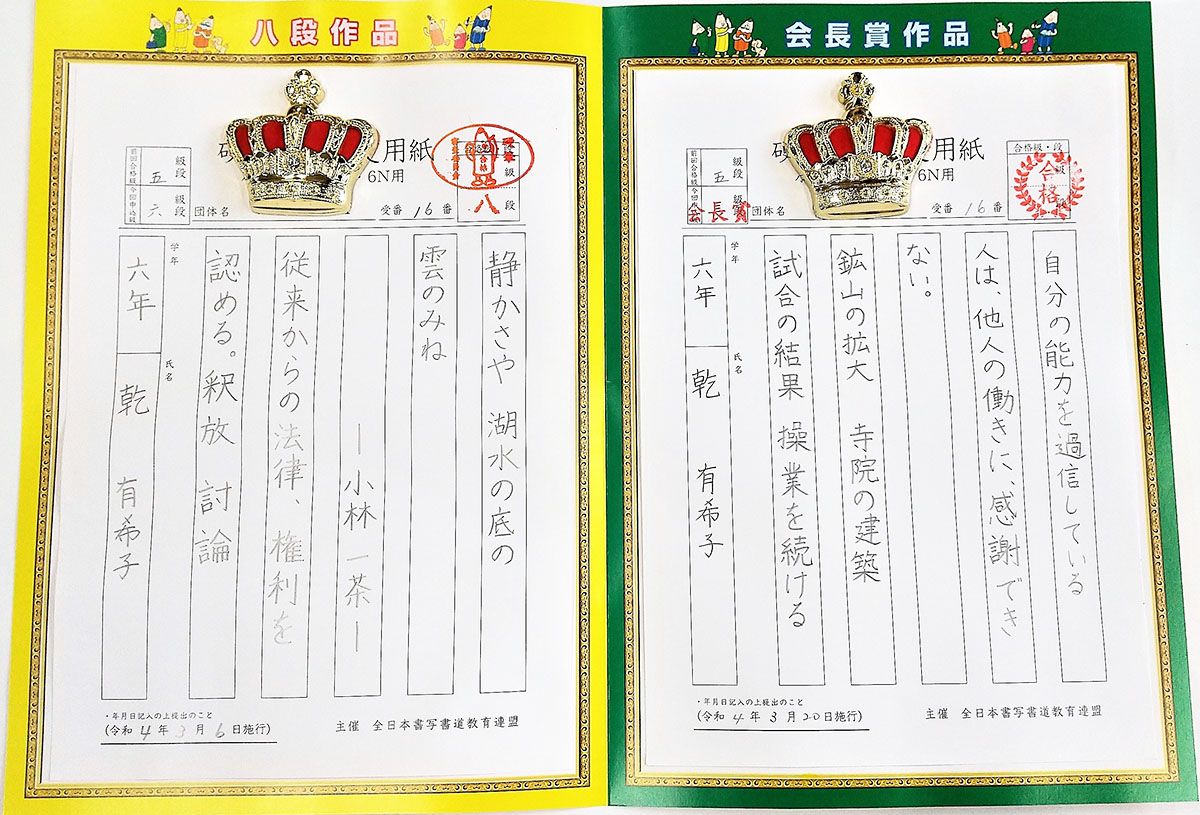 八段作品
用紙
6N用
前回合格級
五
級
段
今回申込級
六
級
段
団体名
受番 16 番
合格
級
八 段
静かさや 湖水の底の
雲のみね
―小林一茶―
従来からの法律、権利を
認める。釈放 討論
学年
六年
氏名
乾 有希子
・年月日記入の上提出のこと
(令和 4 年 3 月 6 日施行)
主催 全日本書写書道教育連盟
会長賞作品
用紙
6N用
前回合格級
五
級
段
会長賞
団体名
受番 16 番
合格級・段
合格
自分の能力を過信している
人は、他人の働きに、感謝でき
ない。
鉱山の拡大 寺院の建築
試合の結果 操業を続ける
学年
六年
氏名
乾 有希子
・年月日記入の上提出のこと
(令和 4 年 3 月 20 日施行)
主催 全日本書写書道教育連盟